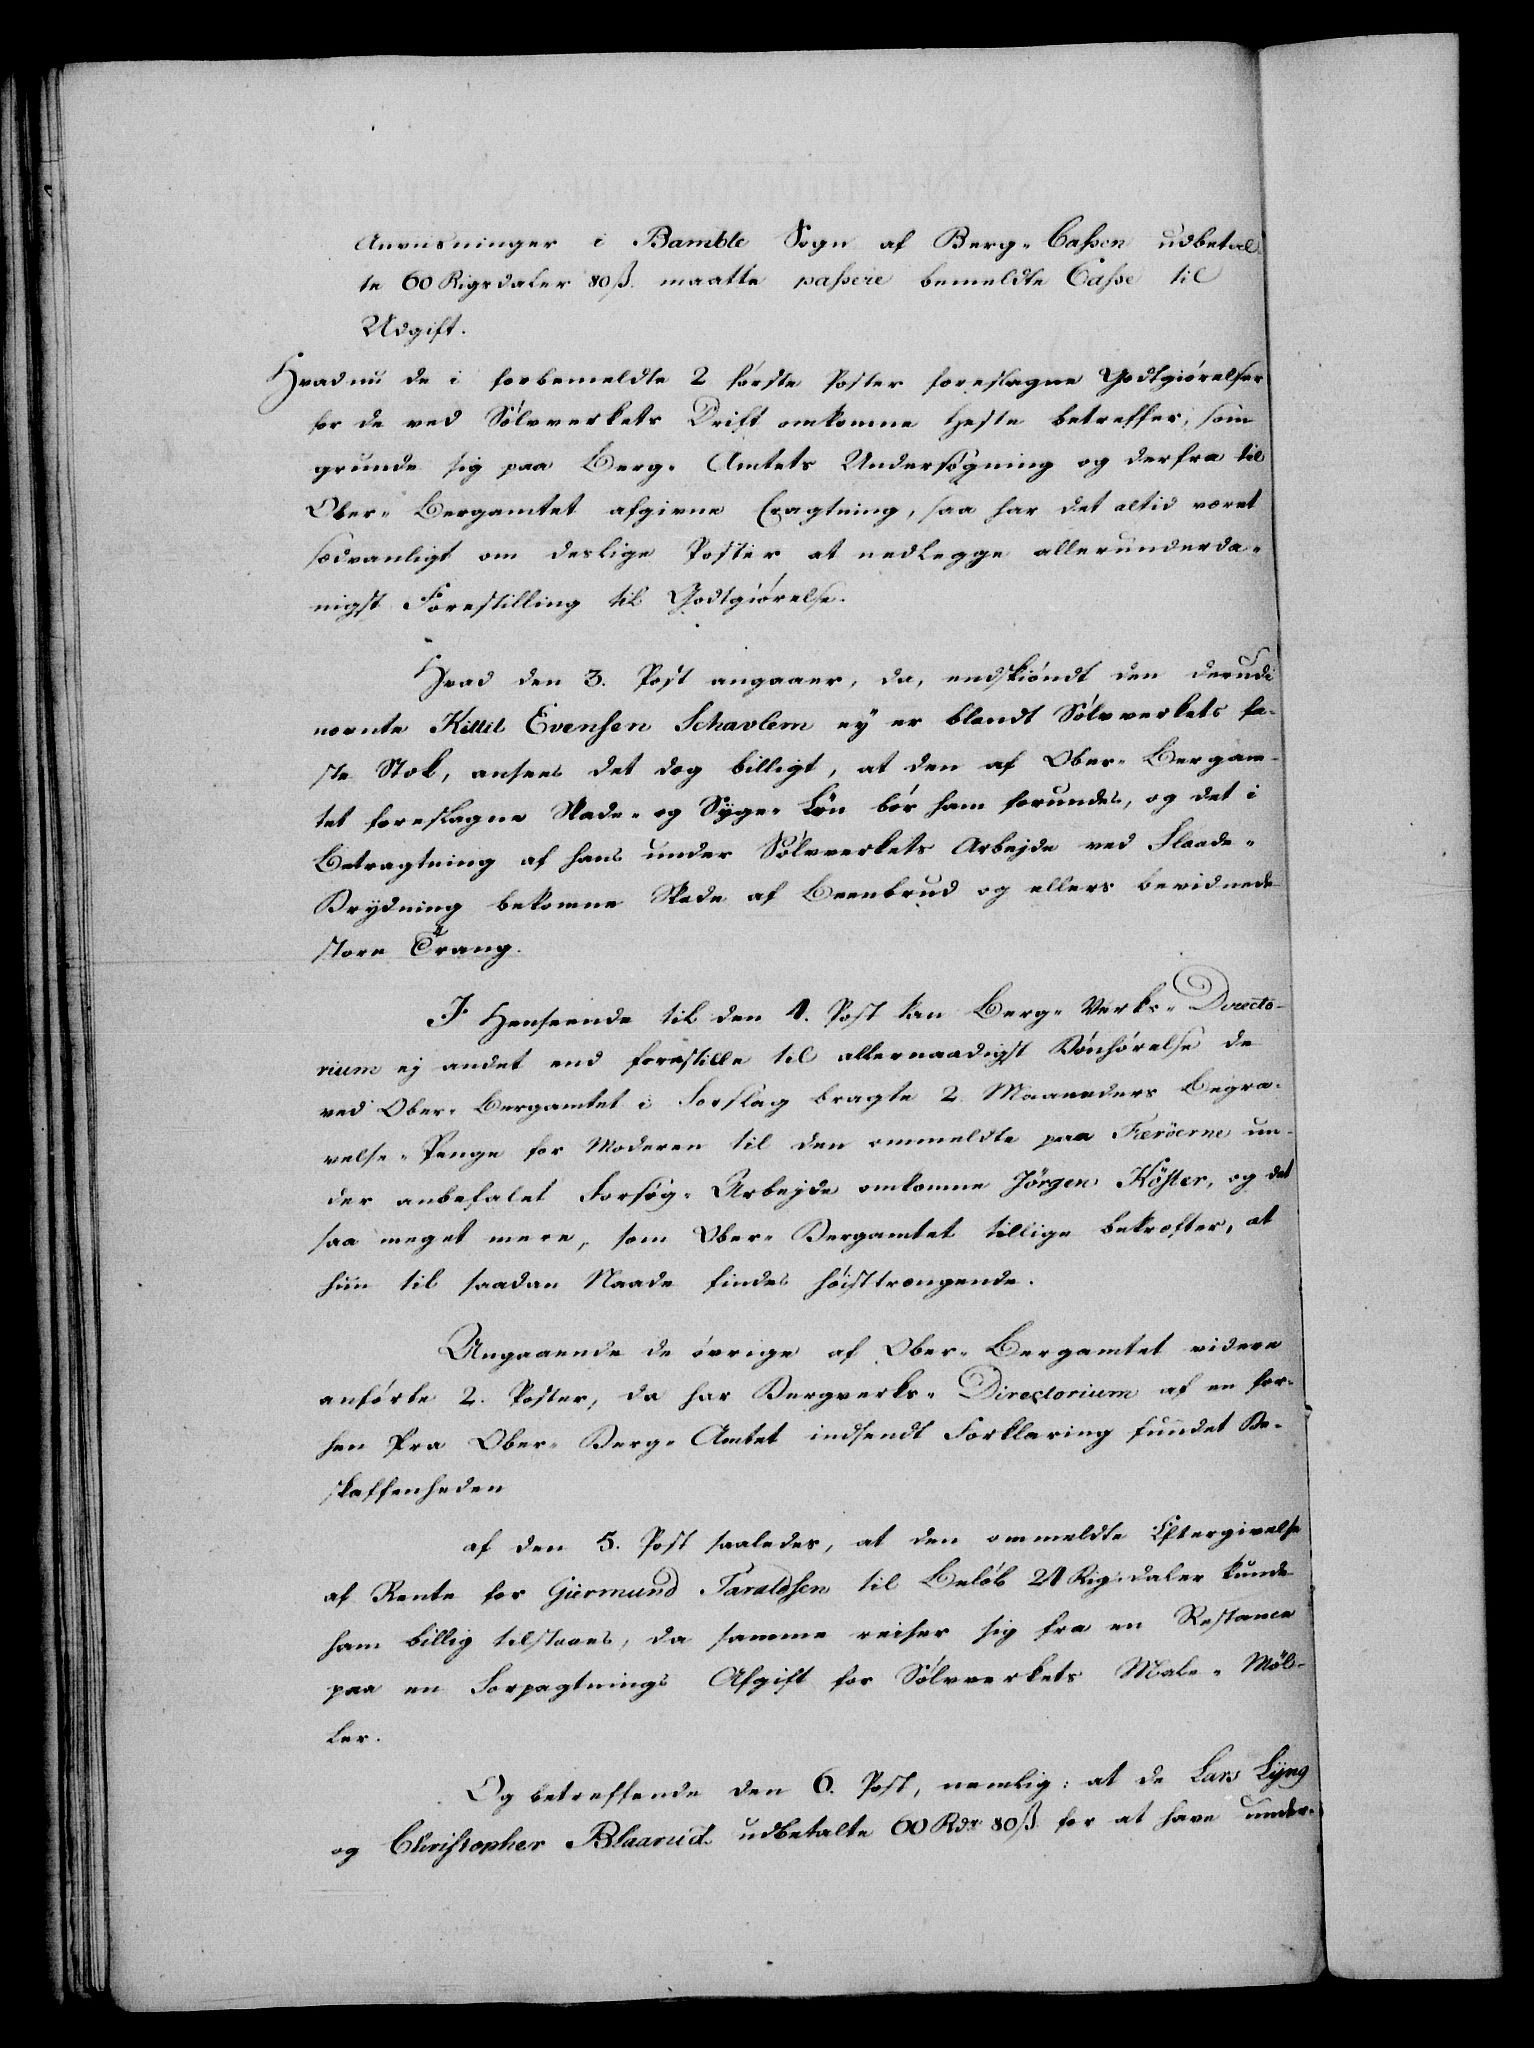 Anviisninger i Bamble Sogn af Berg-Cassen udbetal-
te 60 Rigsdaler 80 ß. maatte passere bemeldte Casse til
Udgift.
Hvad nu de i forbemeldte 2 første Poster foreslagne Godtgiørelser
for de ved Sølvverkets Drift omkomne Heste betreffer, som
grunde sig paa Berg-Amtets Undersøgning og derfra til
Ober-Bergamtet afgivne Eragtning, saa har det altid været
sædvanligt om deslige Poster at nedlegge allerunderda-
nigst Forestilling til Godtgiørelse.
Hvad den 3. Post angaaer, da, endskiøndt den derudi
nevnte Kittil Evensen Schavlem ey er blandt Sølvverkets fa-
ste Stok, ansees det dog billigt, at den af Ober-Bergam-
tet foreslagne Skade- og Syge-Løn bør ham forundes, og det i
Betragtning af hans under Sølvverkets Arbejde ved Flaade-
Brydning bekomne Skade af Beenbrud og ellers bevidnede
store Trang.
I Henseende til den 4. Post kan Berg-Verks-Directo-
rium ej andet end forestille til allernaadigst Bønhørelse de
ved Ober-Bergamtet i Forslag bragte 2 Maaneders Begra-
velse-Penge for Moderen til den ommeldte paa Ferøerne un-
der anbefalet Forsøg-Arbejde omkomne Jørgen Köster, og det
saa meget mere, som Ober-Bergamtet tillige bekræfter, at
hun til saadan Naade findes høisttrængende.
Angaaende de øvrige af Ober-Bergamtet videre
anførte 2. Poster, da har Bergverks-Directorium af en for-
hen fra Ober-Berg-Amtet indsendt Forklaring fundet Be-
skaffenheden
af den 5. Post saaledes, at den ommeldte Eftergivelse
af Rente for Giermund Taraldsen til Beløb 24 Rigsdaler kunde
ham billig tilstaaes, da samme reiser sig fra en Restance
paa en Forpagtnings Afgift for Sølvverkets Male-Møl-
ler.
Og betreffende den 6. Post, nemlig: at de Lars Lÿng
og Christopher Blaarud udbetalte 60 Rdr 80 ß for at have under-